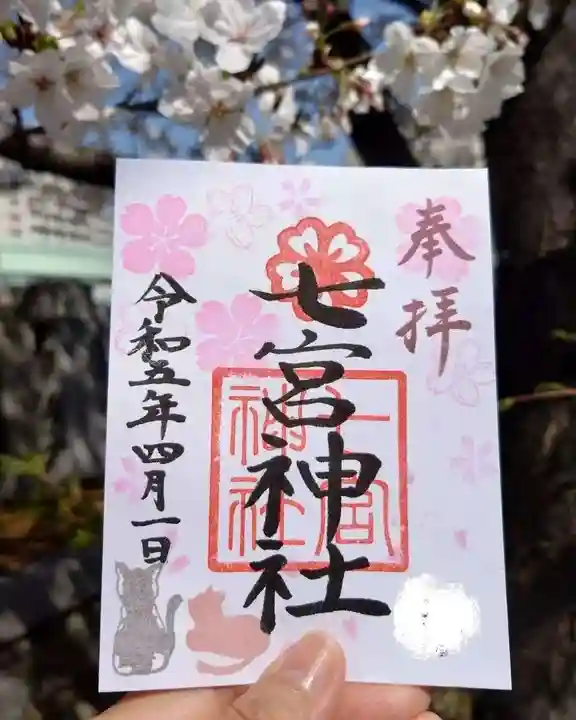 奉拝
七宮神社
七宮神社
令和五年四月一日